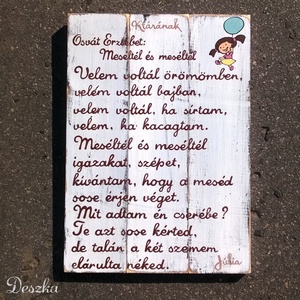 Klárának
Osvát Erzsébet:
Meséltél és meséltél
Velem voltál örömömben,
velem voltál bajban,
velem voltál, ha sírtam,
velem, ha kacagtam.
Meséltél és meséltél
igazakat, szépet,
kívántam, hogy a meséd
sose érjen véget.
Mit adtam én cserébe?
Te azt sose kérted,
de talán a két szemem
elárulta néked.
Júlia
Deszka